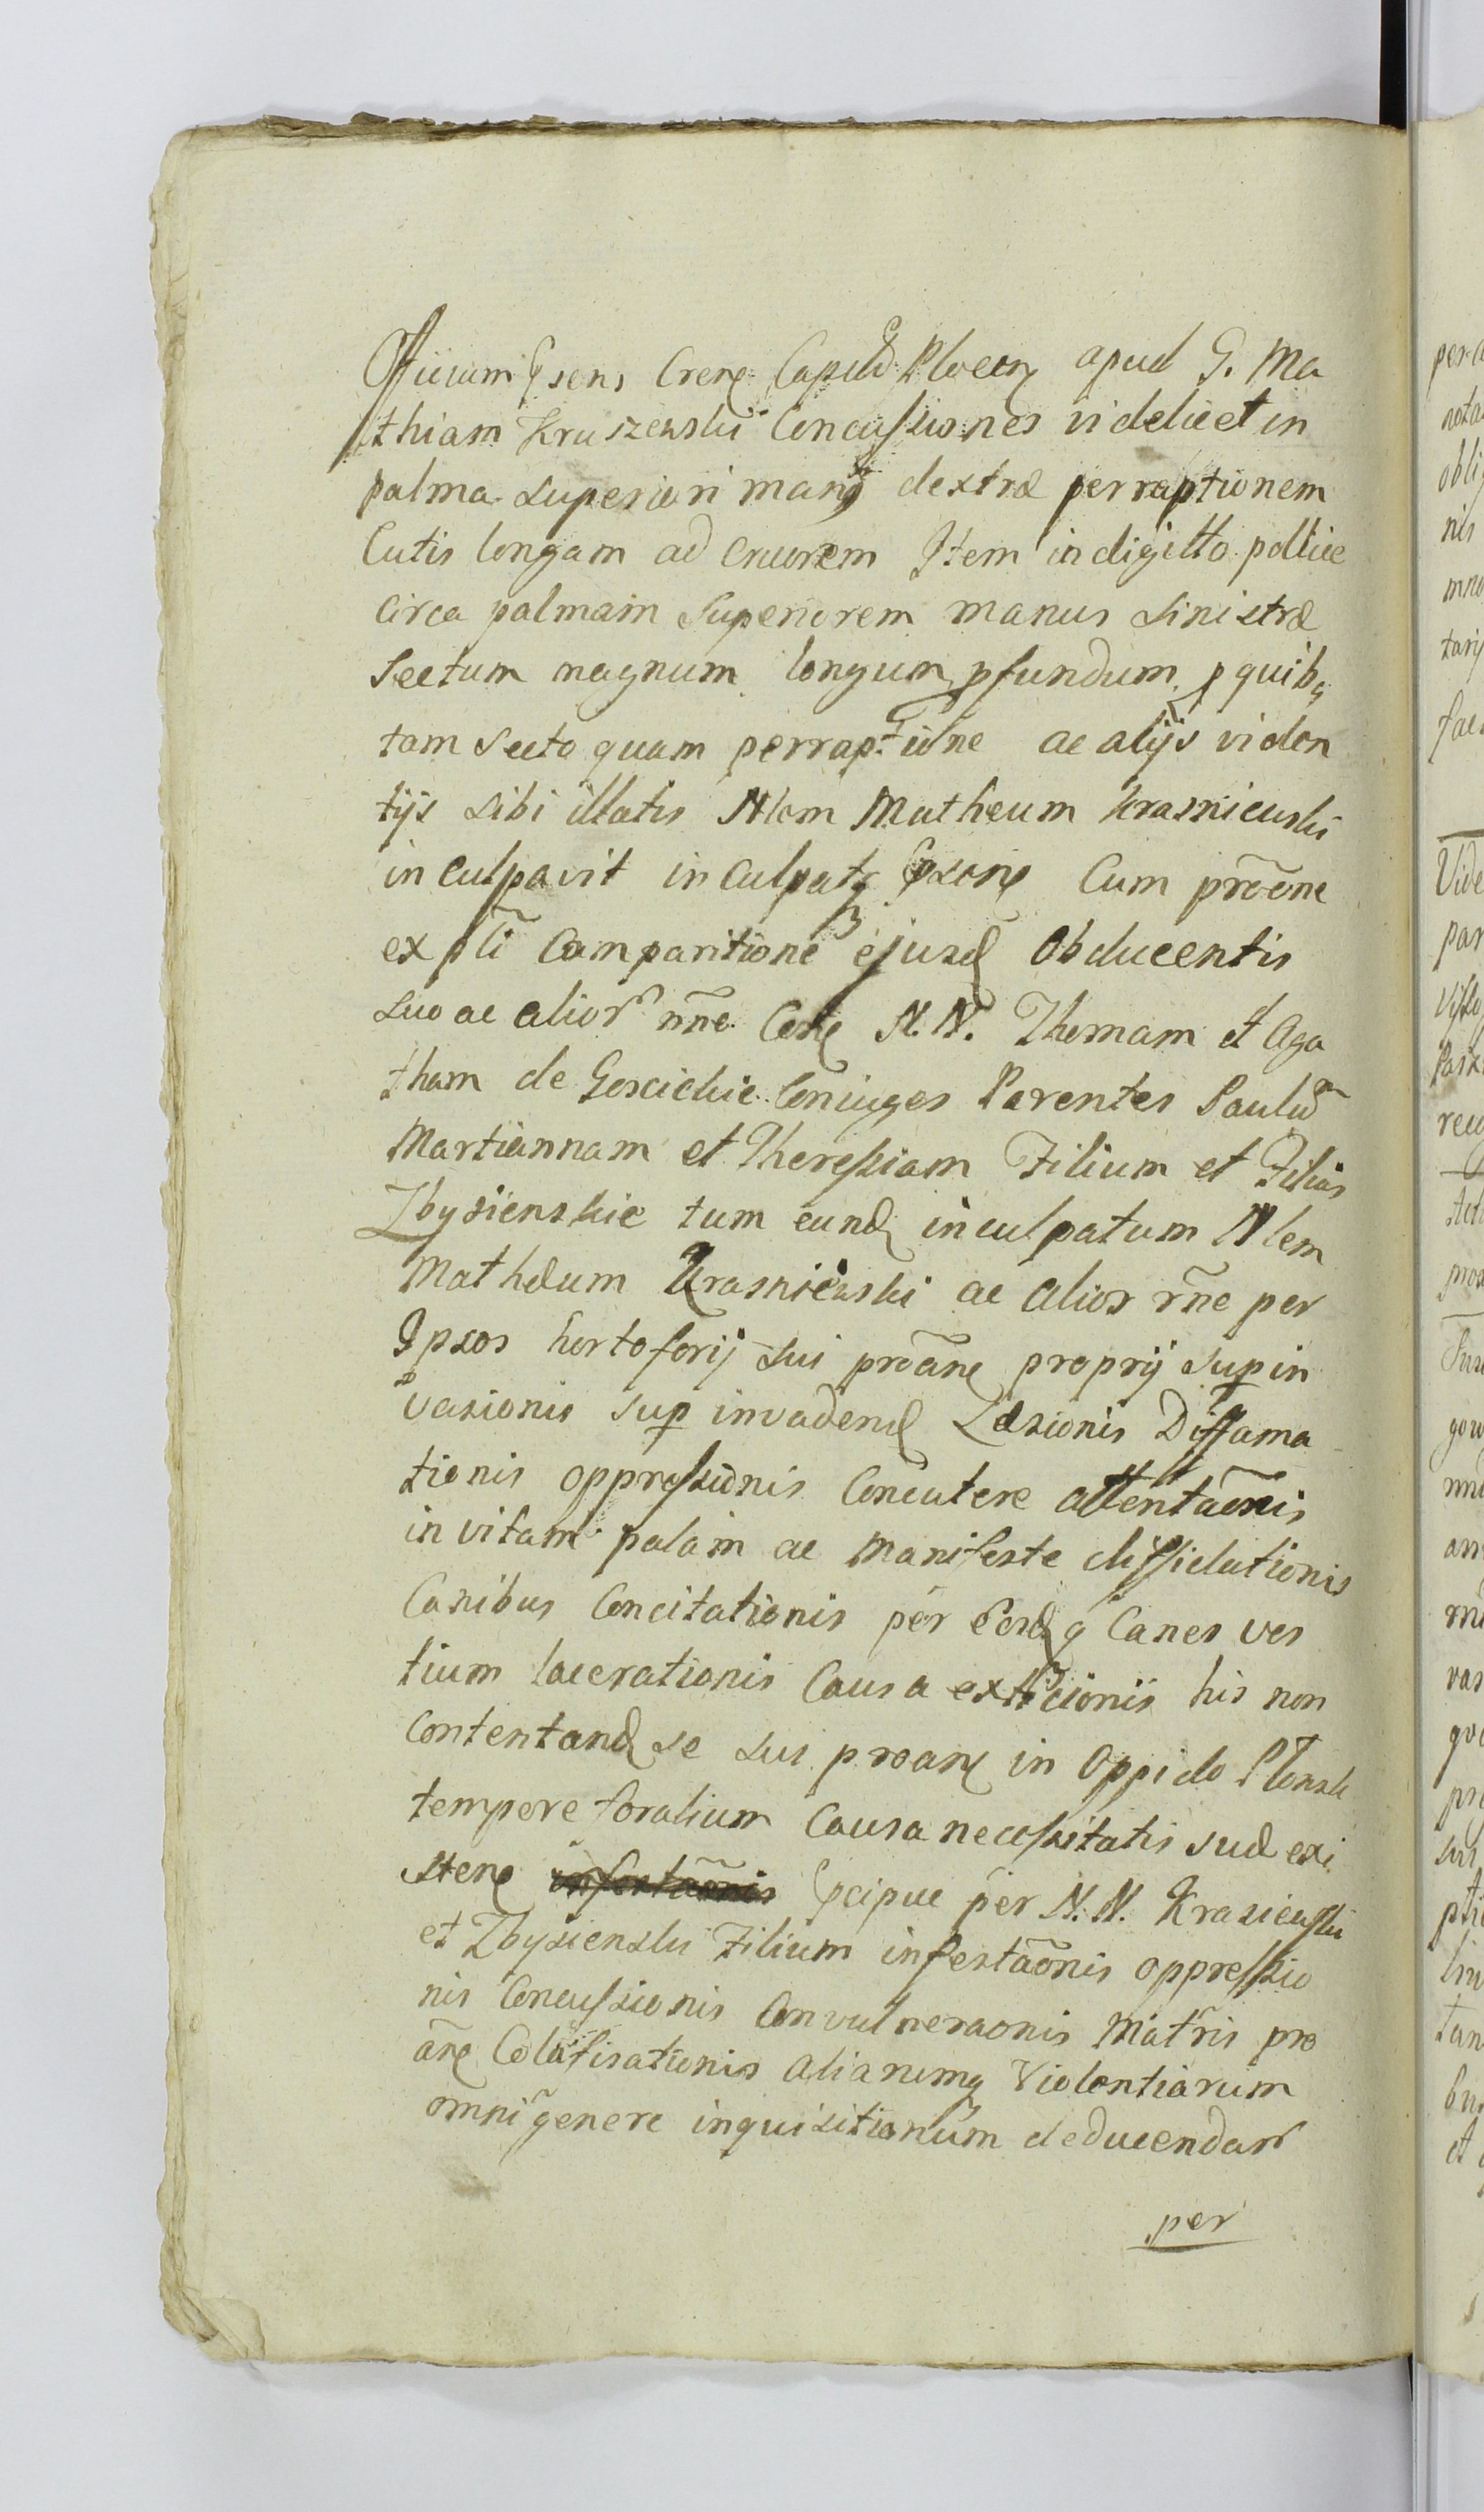 Officium Psens Crens Capitld Plocens apud G. Ma
thiam Kruszewski Concussiones videlicet in
palma superiori manus dextræ perraptionem
Cutis longam ad cruorem Item in digitto pollice
Circa palmam Superiorem manus sinistræ
Sectum magnum longum pfundum, p quibq
tam secto quam perraptione ac alijs violen
tijs sibi illatis Nlem Matheum Krasniewski
inculpavit inculpatq Cum prõene
ex pti Comparitione ejusd Obducentis
suo ac alior nñe N. N. Thomam et Aga
tham de Goscickie Coniuges Parentes Paulũ
Martiannam et Theressiam Filium et Filias
Zbysienskie tum eund inculpatum Nlem
Mathæum Krasniewski ac alios rñe per
Ipsos hortoforij sui proãne proprij Supin
vasionis sup invadend Læsionis Diffama
tionis oppressionis Concutere attentaõnis
invitam palam ac manifeste diffidationis
Canibus Concitationis per Eosdq Canes ves
tium lacerationis Causa his non
Contentand se sui proane in Oppido Plonsk
tempore foralium Causa necessitatis suæ exi
stene Pcipue per N. N. Krasiewski
et Zbysienski Filium infestaõnis oppressio
nis Concussionis Convulneraonis Matris pro
ãne Colafisationis aliarumq Violentiarum
omni genere inquisitionum deducendar
per